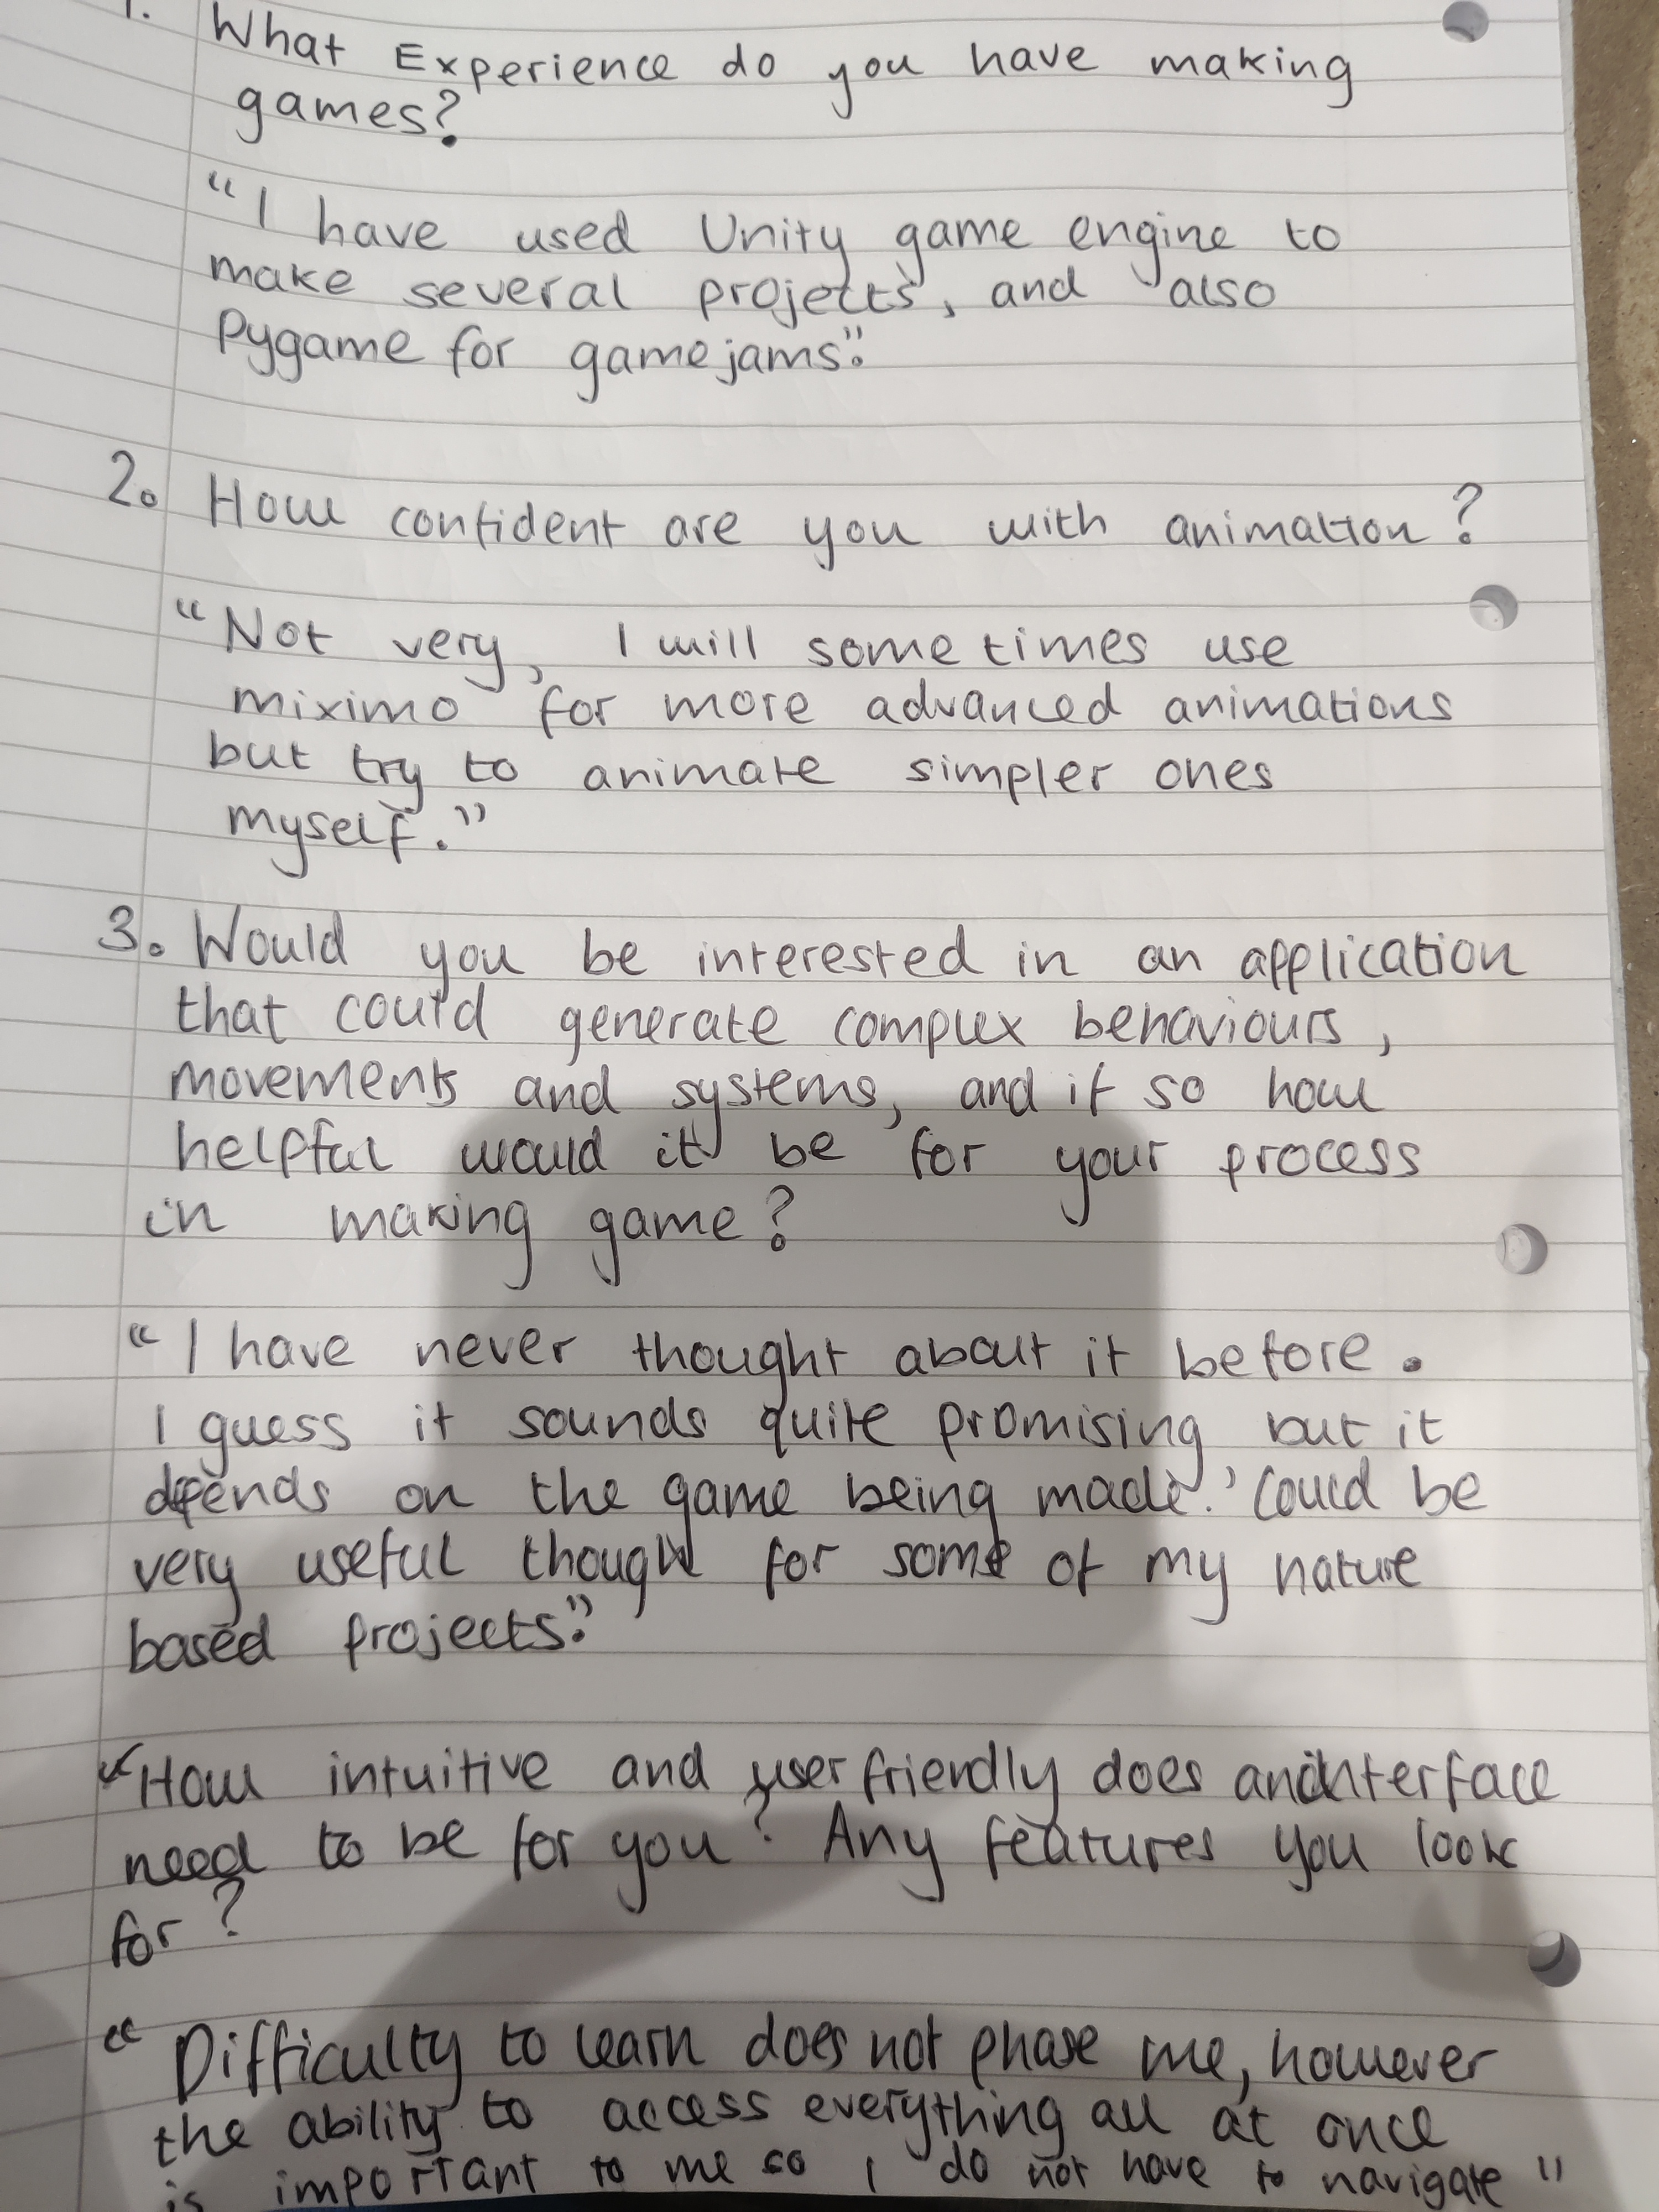 1. What Experience do you have making
games?
"I have used Unity game engine to
make several projects, and also
Pygame for gamejams."
2. How confident are you with animation?
"Not very, I will sometimes use
miximo for more advanced animations
but try to animate simpler ones
myself."
3. Would you be interested in an application
that could generate complex behaviours,
movements and systems, and if so how
helpful would it be for your process
in making game?
"I have never thought about it before.
I guess it sounds quite promising but it
depends on the game being made. Could be
very useful though for some of my nature
based projects."
How intuitive and user friendly does an interface
need to be for you? Any features you look
for?
"Difficulty to learn does not phase me, however
the ability to access everything all at once
is important to me so I do not have to navigate"